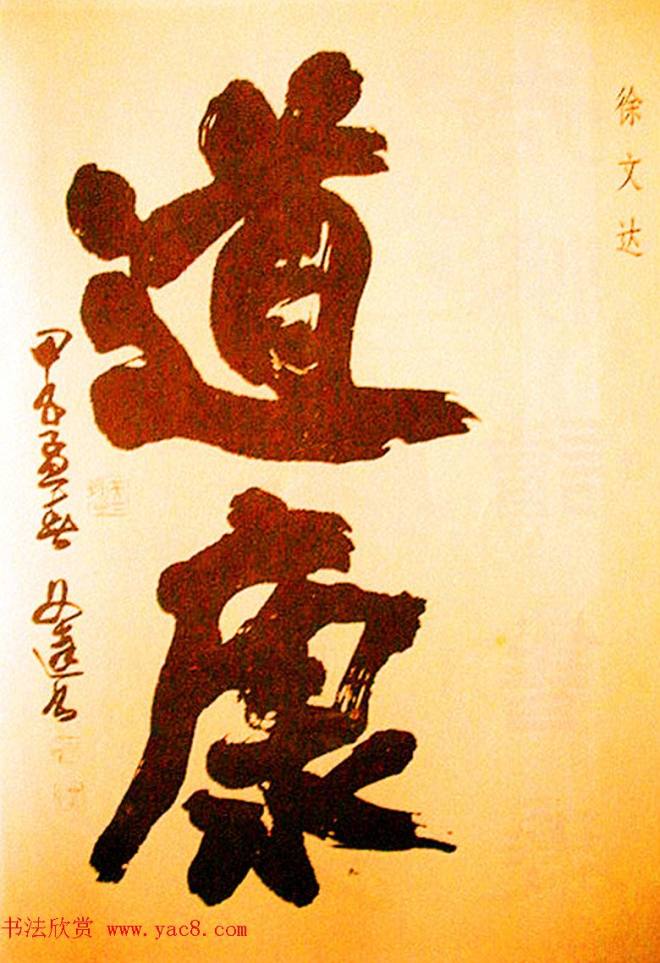 徐文达
道康
甲戌孟春 文达书
书法欣赏 www.yac8.com